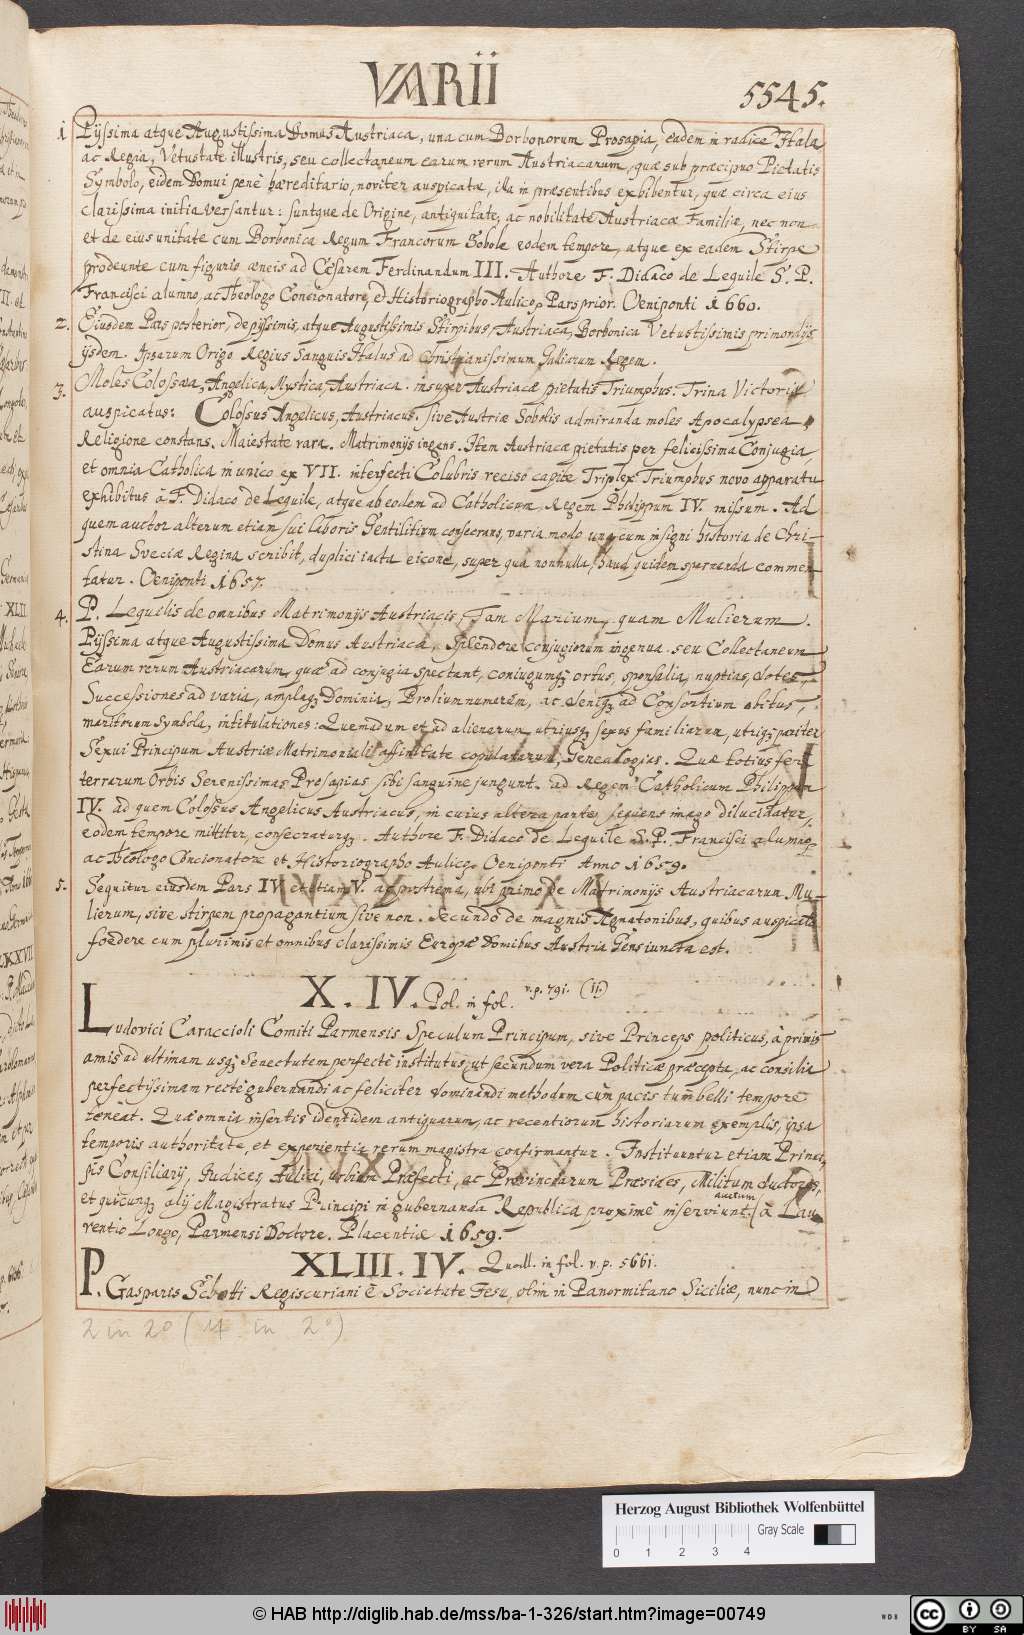 VARII
5545.
1 Piissima atque Augustissima Domus Austriaca, una cum Borbonorum Prosapia, eadem in radice Itala
ac Regia, Vetustate illustris, seu collectaneum earum rerum Austriacarum, quæ sub præcipuo Pietatis
Symbolo, eidem Domui penè hæreditario, noviter auspicata, illa in præsentibus exhibentur, quæ circa eius
clarissima initia versantur: suntque de Origine, antiquitate, ac nobilitate Austriacæ Familiæ, nec non
et de eius unitate cum Borbonica Regum Francorum Sobole eodem tempore, atque ex eadem Stirpe
prodeunte cum figuris æneis ad Cesarem Ferdinandum III. Authore F. Didaco de Lequile S. P.
Francisci alumno, ac Theologo Concionatore, et Historiographo Aulico, Pars prior. Oeniponti 1660.
2. Eiusdem Pars posterior, de pijssimis, atque Augustissimis Stirpibus, Austriaca, Borbonica Vetustissimis primordijs
ijsdem. Ipsarum Origo Regius Sanguis Italus ad Christianissimum Galliarum Regem.
3. Moles Colossæa, Angelica, Mystica, Austriaca. insuper Austriacæ pietatis Triumphus. Trina Victoria
auspicatus: Colossus Angelicus, Austriacus. sive Austriæ Sobolis admiranda moles Apocalypsea
Religione constans. Maiestate rara. Matrimonijs ingens. Item Austriacæ pietatis per felicissima Conjugia
et omnia Catholica in unico ex VII. interfecti Colubris reciso capite Triplex Triumphus novo apparatu
exhibitus à F. Didaco de Lequile, atque ab eodem ad Catholicum Regem Philippum IV. missum. Ad
quem auctor alterum etiam sui laboris Gentilitium consecrans, varia modo una cum insigni historia de Chri-
stina Sveciæ Regina scribit, duplici iacta eicone, super qua nonnulla haud quidem spernenda commen
tatur. Oeniponti 1657.
4. P. Lequilis de omnibus Matrimonijs Austriacis, Tam Marium, quam Mulierum.
Pijssima atque Augustissima Domus Austriaca, Splendore conjugiorum ingenua. seu Collectaneum
Earum rerum Austriacarum, quæ ad conjugia spectant, coniugumq; ortus, sponsalia, nuptias, dotes,
Successiones ad varia, amplaq; Dominia, Prolium numerum, ac deniq; ad Consortium obitus,
maritorum Symbola, intitulationes: Quemadum et ad alienarum utriusq; sexus familiarum, utriq; pariter
Sexui Principum Austriæ Matrimoniali affinitate copulatarum, Genealogias. Quæ totius fere
terrarum Orbis Serenissimas Prosapias sibi sanguine jungunt. ad Regem Catholicum Philippum
IV. ad quem Colossus Angelicus Austriacus, in cuius altera parte, sequens imago dilucidatur,
eodem tempore mittitur, consecraturq;. Authore F. Didaco de Lequile S. P. Francisci alumno
ac Theologo Concionatore et Historiographo Aulico. Oeniponti Anno 1659.
5. Sequitur eiusdem Pars IV et etiam V. ac postrema, ubi primo de Matrimonijs Austriacarum Mu-
lierum, sive stirpem propagantium sive non. Secundo de magnis Agnationibus, quibus auspicato
foedere cum plurimis et omnibus clarissimis Europæ Domibus Austria Gens iuncta est.
X. IV. Pol. in fol. v.p. 791. (II.)
Ludovici Caraccioli Comiti Parmensis Speculum Principum, sive Princeps politicus, à primis
annis ad ultimam usq; Senectutem perfectè institutus, ut secundum vera Politicæ præcepta, ac consilia
perfectissimam rectè gubernandi ac feliciter dominandi methodum cum pacis tum belli tempore
teneat. Quæ omnia insertis identidem antiquarum, ac recentiorum historiarum exemplis, ipsa
temporis authoritate, et experientia rerum magistra confirmantur. Instituuntur etiam Princi-
pis Consiliarij, Judices, Aulici, urbium Præfecti, ac Provinciarum Præsides, Militum ductores,
et quicunq; alij Magistratus Principi in gubernanda Republica proximè inserviunt. auctum à Lau
rentio Longo, Parmensi Doctore. Placentiæ 1659.
XLIII. IV. Quodl. in fol. v. p. 5661.
P. Gasparis Schotti Regiscuriani è Societate Jesu, olim in Panormitano Siciliæ, nunc in
2 in 2° (4 in 2°)
Herzog August Bibliothek Wolfenbüttel
Gray Scale
0 1 2 3 4
© HAB http://diglib.hab.de/mss/ba-1-326/start.htm?image=00749
WDB
cc BY SA